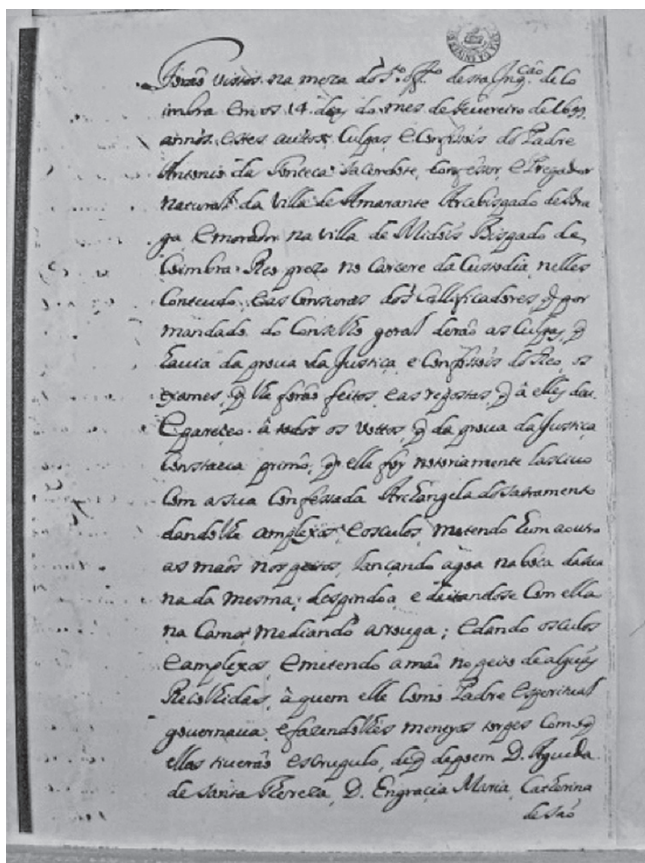 Forão vistos na meza do S.to Off.o desta Inq.ção de Co
imbra em os 14 dias do mes de Feuereiro de 1699
annos, estes autos, Culpas, e Confissois do Padre
Antonio da Fonceca Sacerdote, Confessor, e Pregador
natural da Villa de Amarante Arcebispado de Bra
ga, e morador na Villa de Midois Bispado de
Coimbra. Reo prezo no Carcere da Custodia, nelles
Conteudo. E as Censuras dos Callificadores q por
mandado do Conselho geral derão as Culpas, q
hauia da proua da Justiça, e Confissois do Reo, os
exames, q lhe forão feitos, e as repostas, q à elles deu
E pareceo à todos os Vottos, q da proua da Justiça
Constaua primo, q elle foy notoriamente lasciuo
Com a sua Confessada Archangela do Sacramento
dandolhe amplexos, e osculos, metendo hum a outro
as maõs nos peitos, lançando agoa na boca da sua
na da mesma; despindoa e deitandose Com ella
na Cama mediando a roupa; e dando osculos
e amplexos, e metendo a mão no peito de alguãs
Recolhidas, à quem elle Como Padre Espiritual
gouernaua, e fazendolhes meneyos torpes Com q
ellas tiuerão escrupulo, de q depoem D. Agueda
de Santa Thereza, D. Engracia Maria, Catherina
de São